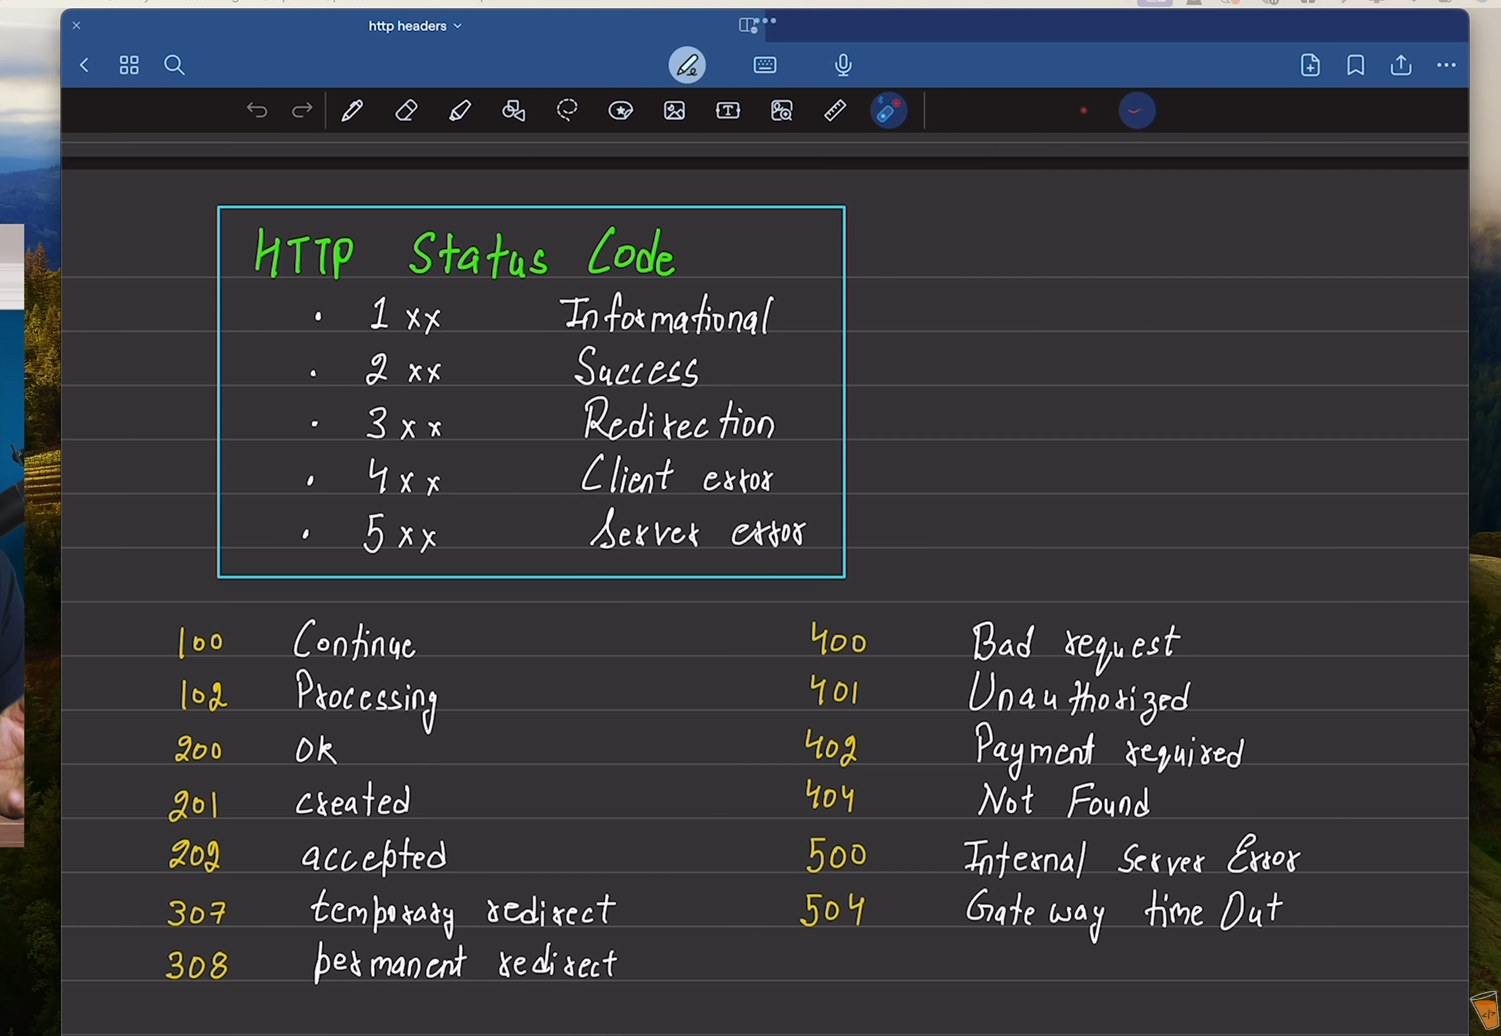 http headers
HTTP Status Code
• 1xx Informational
• 2xx Success
• 3xx Redirection
• 4xx Client error
• 5xx Server error
100 Continue
102 Processing
200 Ok
201 created
202 accepted
307 temporary redirect
308 permanent redirect
400 Bad request
401 Unauthorized
402 Payment required
404 Not Found
500 Internal Server Error
504 Gateway time Out